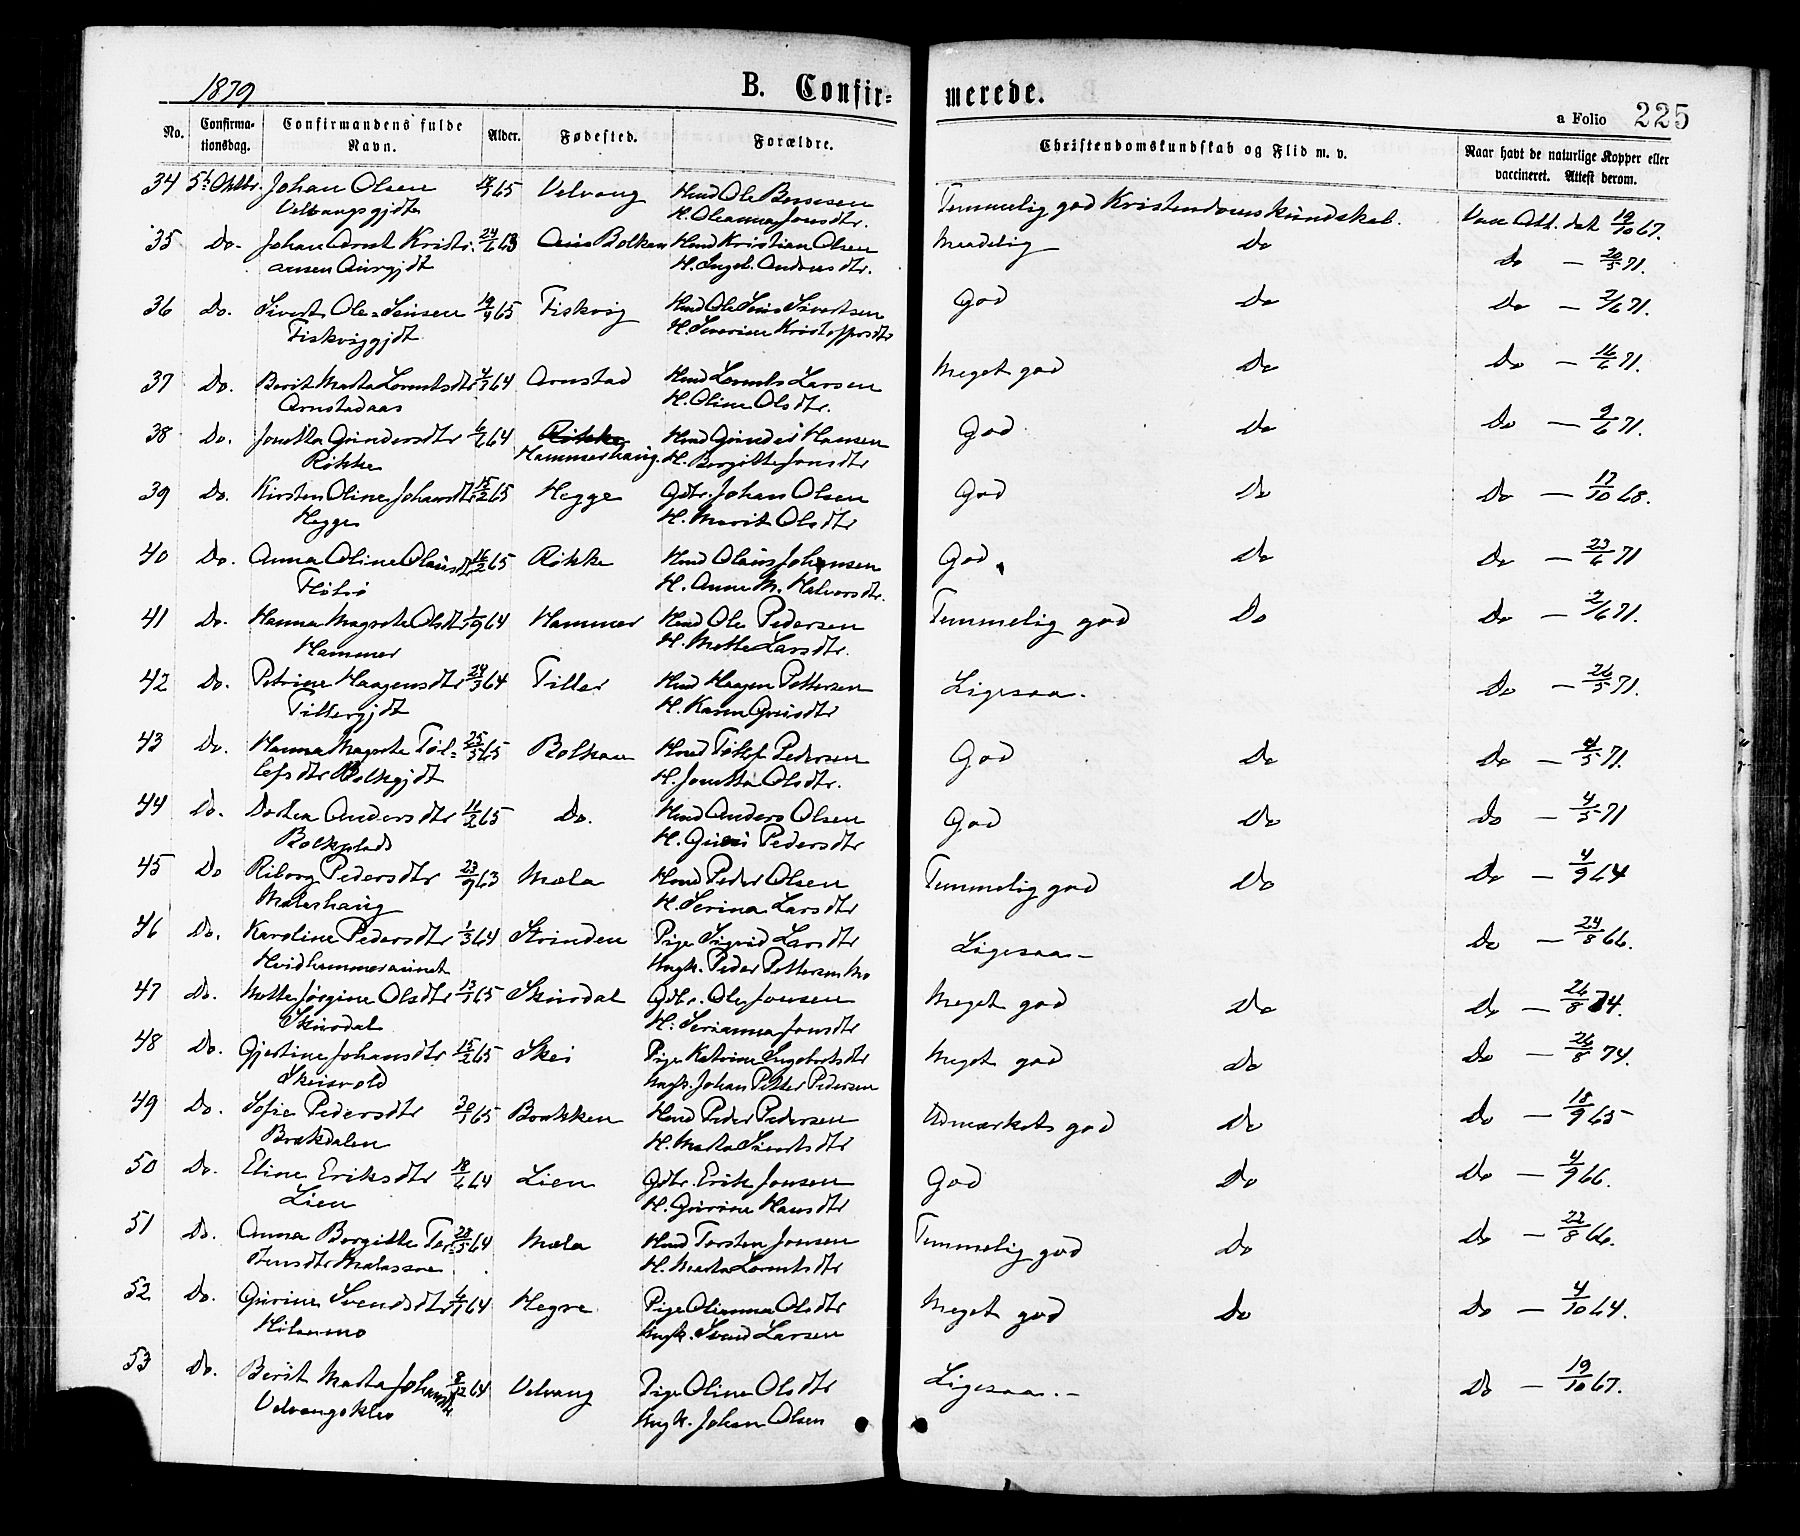 1879 B. Confir- merede.
a Folio 225
No. Confirma- Confirmandens fulde Alder. Fødested. Forældre. Christendomskundskab og Flid m. v. Naar havt de naturlige Kopper eller
tionsdag. Navn. vaccineret. Attest derom.
34 5te Oktbr. Johan Olsen 65 Velvang Hmd Ole Bernsen Temmelig god Kristendomskundskab. Vacc. Att. dat 19/10 67.
Velvangsgjdt H. Oleanna Jonsdtr.
35 Do. Johan Arnt Kristi- 24/6 63 Bolkan Hmd Kristian Olsen Maadelig Do Do — 20/5 71.
ansen H. Ingeb. Andersdtr.
36 Do. Sivert Ole Jensen 19/9 65 Fiskvig Hmd Ole Jens Sivertsen God Do Do — 2/6 71.
Fiskviggjdt H. Severine Kristoffersdtr
37 Do. Berit Marta Lorntsdtr 4/7 64 Arnstad Hmd Lornts Larsen Meget god Do Do — 16/6 71.
Arnstadaas H. Oline Olsdtr.
38 Do. Jonetta Gundersdtr 6/6 64 Røkke Hmd Gunder Hansen God Do Do — 9/6 71.
Røkke Hammerhaug. H. Borgitte Jonsdtr
39 Do. Kirsten Oline Johansdtr 15/2 65 Hegge Gdbr. Johan Olsen God Do Do — 17/10 68.
Hegge H. Marit Olsdtr
40 Do. Anna Oline Olausdtr 16/2 65 Røkke Hmd Olaus Johansen God. Do Do — 23/6 71
H. Anne M. Halvorsdtr.
41 Do. Hanna Magrete Olsdtr 1/9 64 Hammer Hmd Ole Pedersen Temmelig god Do Do — 2/6 71.
Hammer H. Mette Larsdtr.
42 Do. Petrine Haagensdtr 29/3 64 Tiller Hmd Haagen Pettersen Ligesaa. Do — 26/5 71.
Tillergjdt H. Karen
43 Do. Hanna Magrete Tøl- 25/3 65 Bolkan Hmd Tøllef Pedersen God Do Do — 4/5 71.
lefsdtr Bolkgjdt H. Jonetta Olsdtr.
44 Do. Dortea Andersdtr 11/2 65 Do. Hmd Anders Olsen God Do Do — 4/5 71
Bolkplads H. Guri Pedersdtr
45 Do Riborg Pedersdtr 23/9 63 Mæla Hmd Peder Olsen Temmelig god Do Do — 4/9 64
Mælashaug H. Serina Larsdtr
46 Do. Karoline Pedersdtr 1/3 64 Strinden Pige Sigrid Larsdtr Ligesaa — Do — 24/8 66.
Ungk. Peder Pettersen Mo
47 Do. Mette Jørgine Olsdtr 13/7 65 Skurdal Gdbr. Ole Jonsen Meget god Do Do — 26/8 74.
Skurdal H. Serianna Jonsdtr
48 Do. Gjertine Johansdtr 15/2 65 Skei Pige Katrine Ingebrtsdtr Meget god Do Do — 26/8 74.
Skeisvold Ungk. Johan Petter Pedersen
49 Do. Sofie Pedersdtr 20/7 65 Brækken Hmd Peder Pedersen Udmærkets god Do Do — 18/9 65
Brækdalen H. Marta Sivertsdtr
50 Do. Eline Eriksdtr 18/6 64 Lien Gdbr. Erik Jonsen God Do Do — 4/9 66.
Lien H. Gurine Hansdtr
51 Do. Anna Borgitte Tor- 28/5 64 Mæla Hmd Torsten Jonsen Temmelig god Do Do — 22/8 66.
stensdtr H. Marta Lorntsdtr
52 Do. Gurine Svendsdtr 6/1 64 Hegre Pige Olianna Olsdtr Meget god Do Do — 4/10 64.
Hilsenmo Ungk. Svend Larsen
53 Do. Berit Marta Johansdtr 8/12 64 Velvang Pige Oline Olsdtr Ligesaa. — Do — 19/10 67.
Velvangsklev Ungk. Johan Olsen